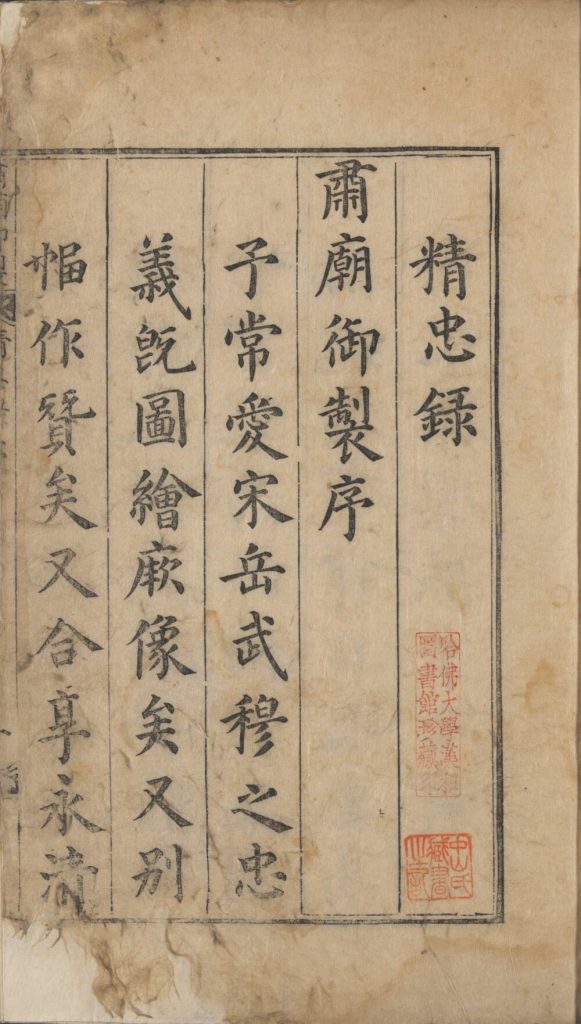 精忠録
肅廟御製序
予常愛宋岳武穆之忠
義旣圖繪厥像矣又别
幅作贊矣又合享永淸
哈佛大學漢和
圖書館珍藏印